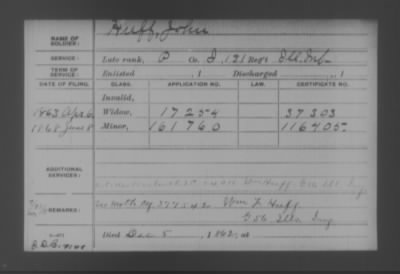 NAME OF SOLDIER: Huff, John
SERVICE: Late rank, P Co. I, 121 Reg't Ill. Inf.
TERM OF SERVICE: Enlisted , 1 Discharged , 1
DATE OF FILING. CLASS. APPLICATION NO. LAW. CERTIFICATE NO.
Invalid,
1863 Apr 6, Widow, 17254 37303
1868 June 8 Minor, 161760 116405
ADDITIONAL SERVICES:
Huff
REMARKS: See Moth 377542 Wm F Huff
G 56 Ills Inf
Died Dec 5, 1862, at